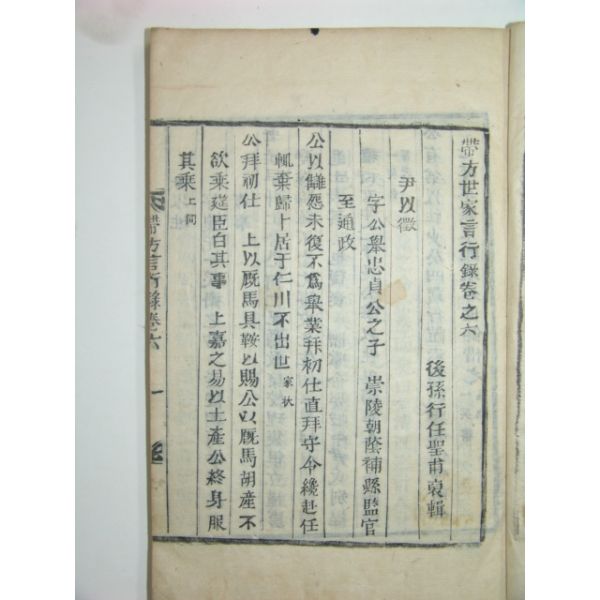 帶方世家言行錄卷之六
後孫行任聖甫裒輯
尹以徵
字公擧忠貞公之子 崇陵朝蔭補縣監官
至通政
公以讎怨未復不爲擧業拜初仕直拜守令纔赴任
輒棄歸卜居于仁川不出世 家狀
公拜初仕 上以廐馬具鞍以賜公以廐馬胡產不
欲乘筵臣白其事 上嘉之易以土產公終身服
其乘 上同
帶方言行錄卷六 一